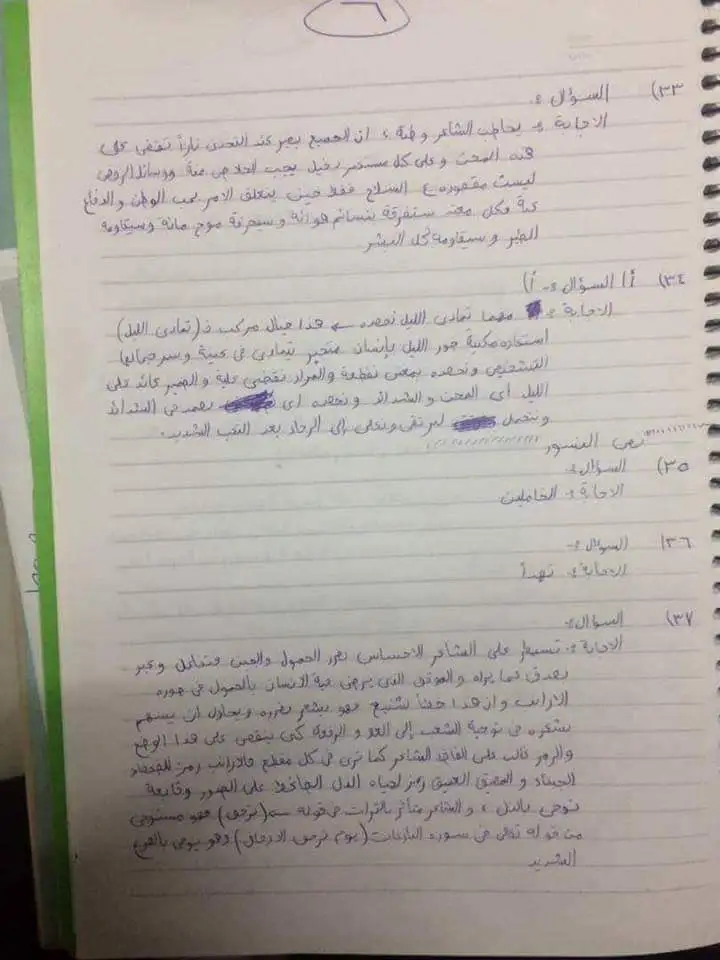 ٦
٣٣) السؤال :-
الاجابة :- يخاطب الشاعر وطنه ، ان الجميع يصير عند التحدى ناراً تقضى على
هذه المحن وعلى كل مستعمر دخيل يجب الخلاص منة ووسائل الرفض
ليست مقصوده ع السلاح فقط حين يتعلق الامر بحب الوطن و الدفاع
عنة فكل معتد ستفرقة بنسائم هوائه و ستحرقة موج مائه وسيقاومه
الطير و سيقاومه كل البشر
٣٤) أ) السؤال :- أ)
الاجابة :- مهما تمادى الليل نحصده ← هذا خيال مركب ف (تمادى الليل)
استعاره مكنية صور الليل بإنسان متجبر يتمادى فى غية وسر جمالها
التشخيص ونحصده بمعنى نقطعة والمراد نقضى علية و الضمير عائد على
الليل أى المحن و الشدائد ونحصده اى نصمد فى الشدائد
ونتحمل لنرتقى ونصل إلى الرخاء بعد التعب الشديد.
نص النسور
٣٥) السؤال :-
الاجابة :- الخاملين
٣٦) السؤال :-
الاجابة :- تهدأ
٣٧) السؤال :-
الاجابة :- تسيطر على الشاعر الاحساس بضرر الخمول والجبن فتفاعل وعبر
بصدق عما يراه و الموقف الذى يرضى فية الانسان بالخمول فى صوره
الارانب وان هذا حقاً لشنيع فهو يشعر بضرره ويحاول ان يسهم
بشعره فى توجية الشعب إلى العلا و الرفعة كى ينقضى على هذا الوضع
والرمز غالب على الفاظ الشاعر كما نرى فى كل مقطع فالارانب رمز للضعفاء
الجبناء و المضيق العميق رمز لحياه الذل الجاثم على الصدور وقابعة
توحى بالذل ، و الشاعر متأثر بالتراث فى قوله ← (ترجف) فهو مستوحى
من قوله تعالى فى سوره النازعات (يوم ترجف الراجفة) وهو يوحى بالفزع
الشديد